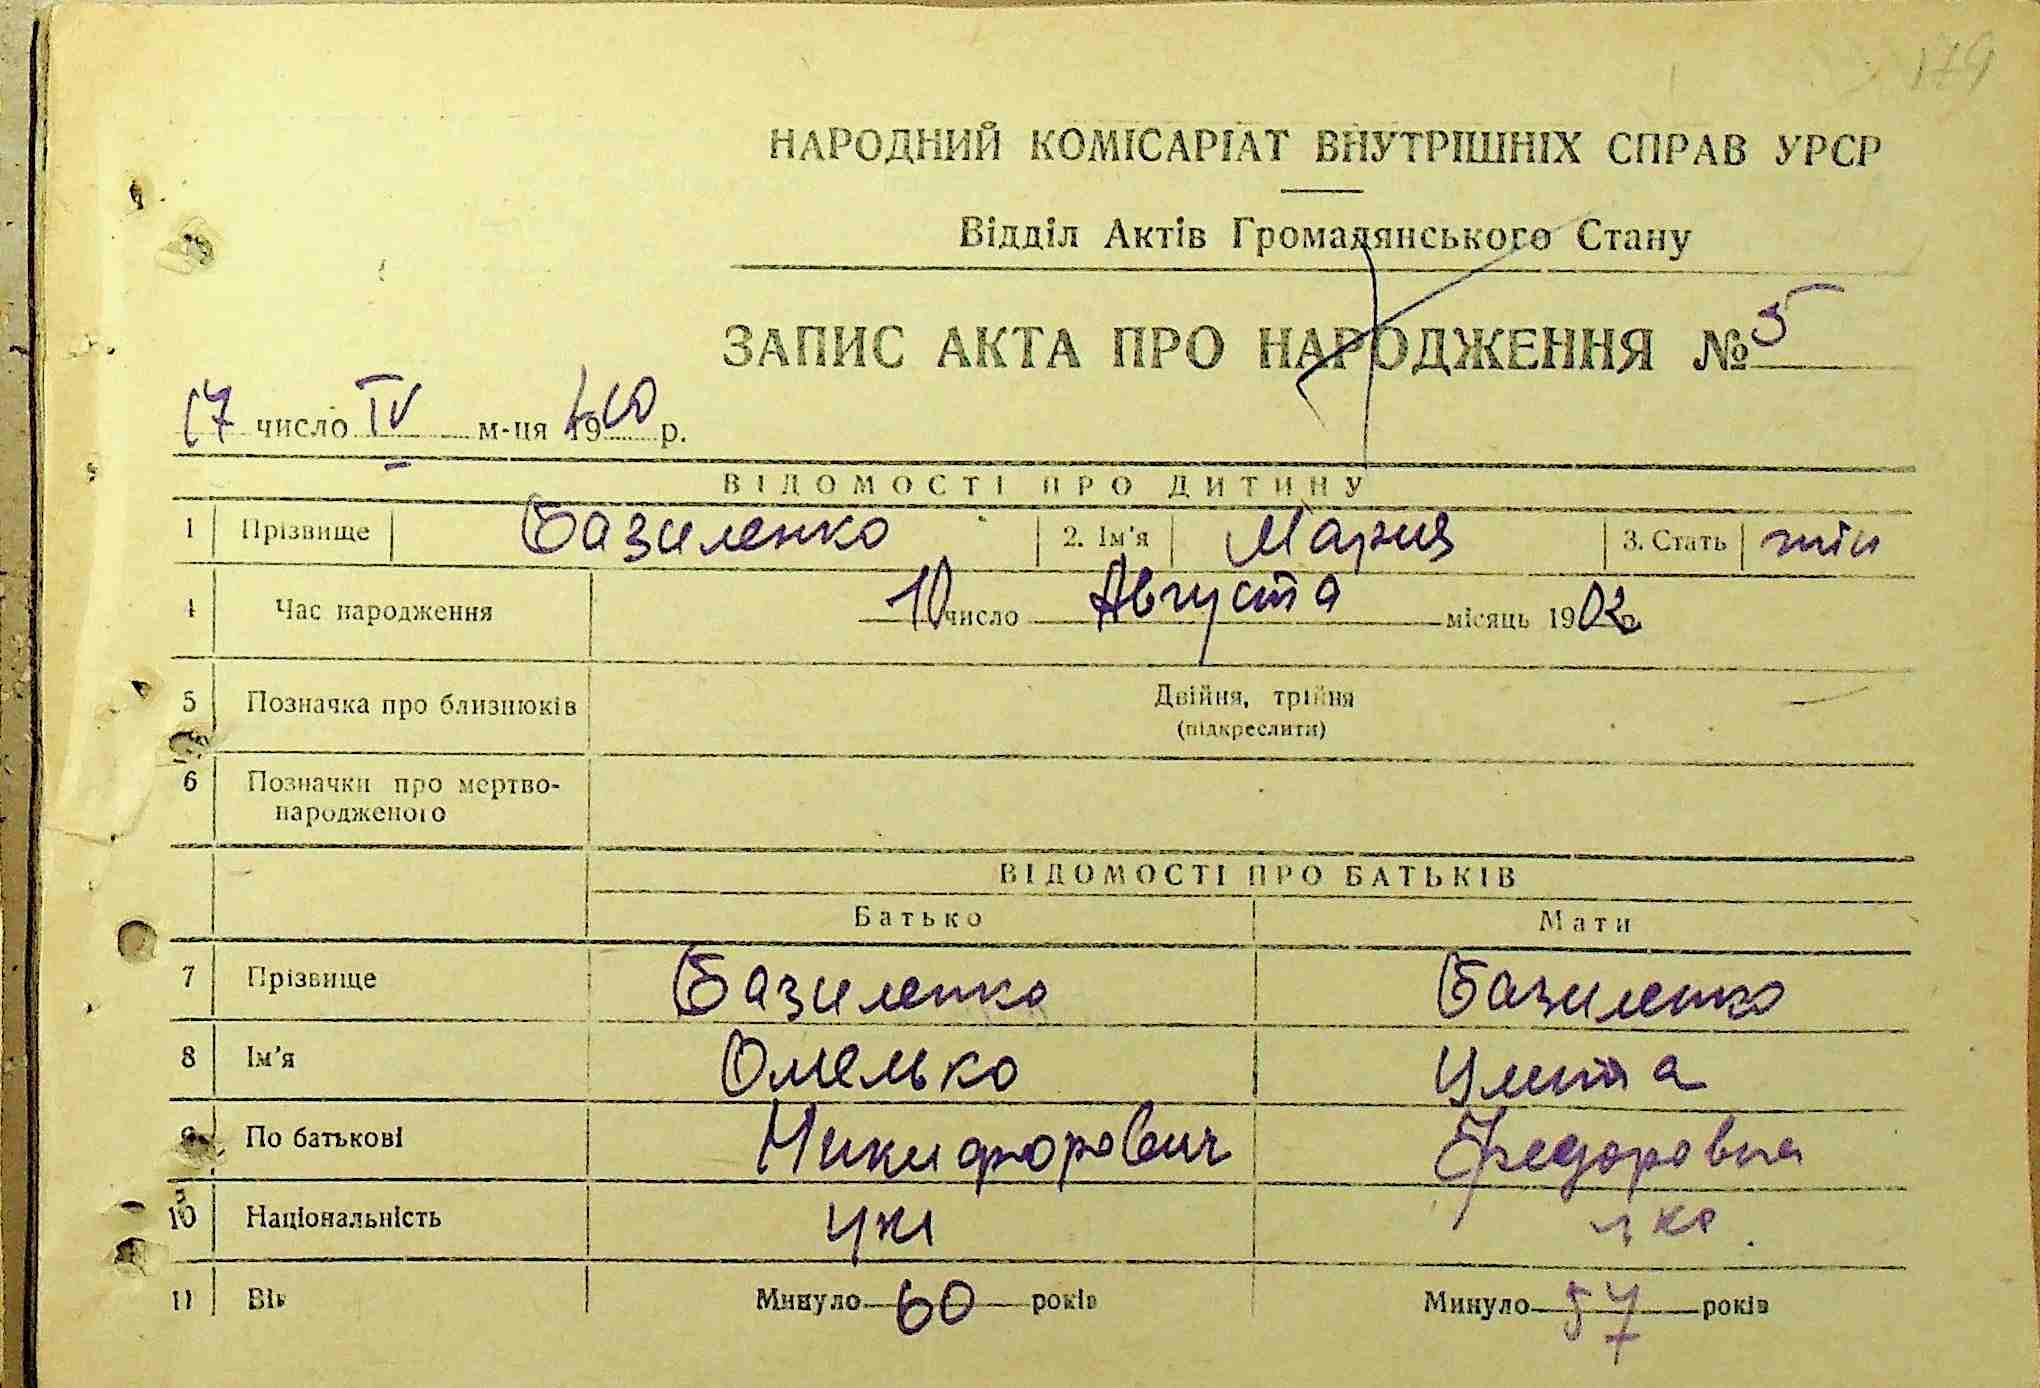 179
НАРОДНИЙ КОМІСАРІАТ ВНУТРІШНІХ СПРАВ УРСР
Відділ Актів Громадянського Стану
ЗАПИС АКТА ПРО НАРОДЖЕННЯ № 5
17 число IV м-ця 1940 р.
ВІДОМОСТІ ПРО ДИТИНУ
1 Прізвище Базиленко 2. Ім'я Мария 3. Стать жін
4 Час народження 10 число Августа місяць 1902
5 Позначка про близнюків Двійня, трійня —
(підкреслити)
6 Позначки про мертво-
народженого
ВІДОМОСТІ ПРО БАТЬКІВ
Батько Мати
7 Прізвище Базиленко Базиленко
8 Ім'я Омелько Улита
9 По батькові Никифорович Федоровна
10 Національність укр
11 Вік Минуло 60 років Минуло 57 років